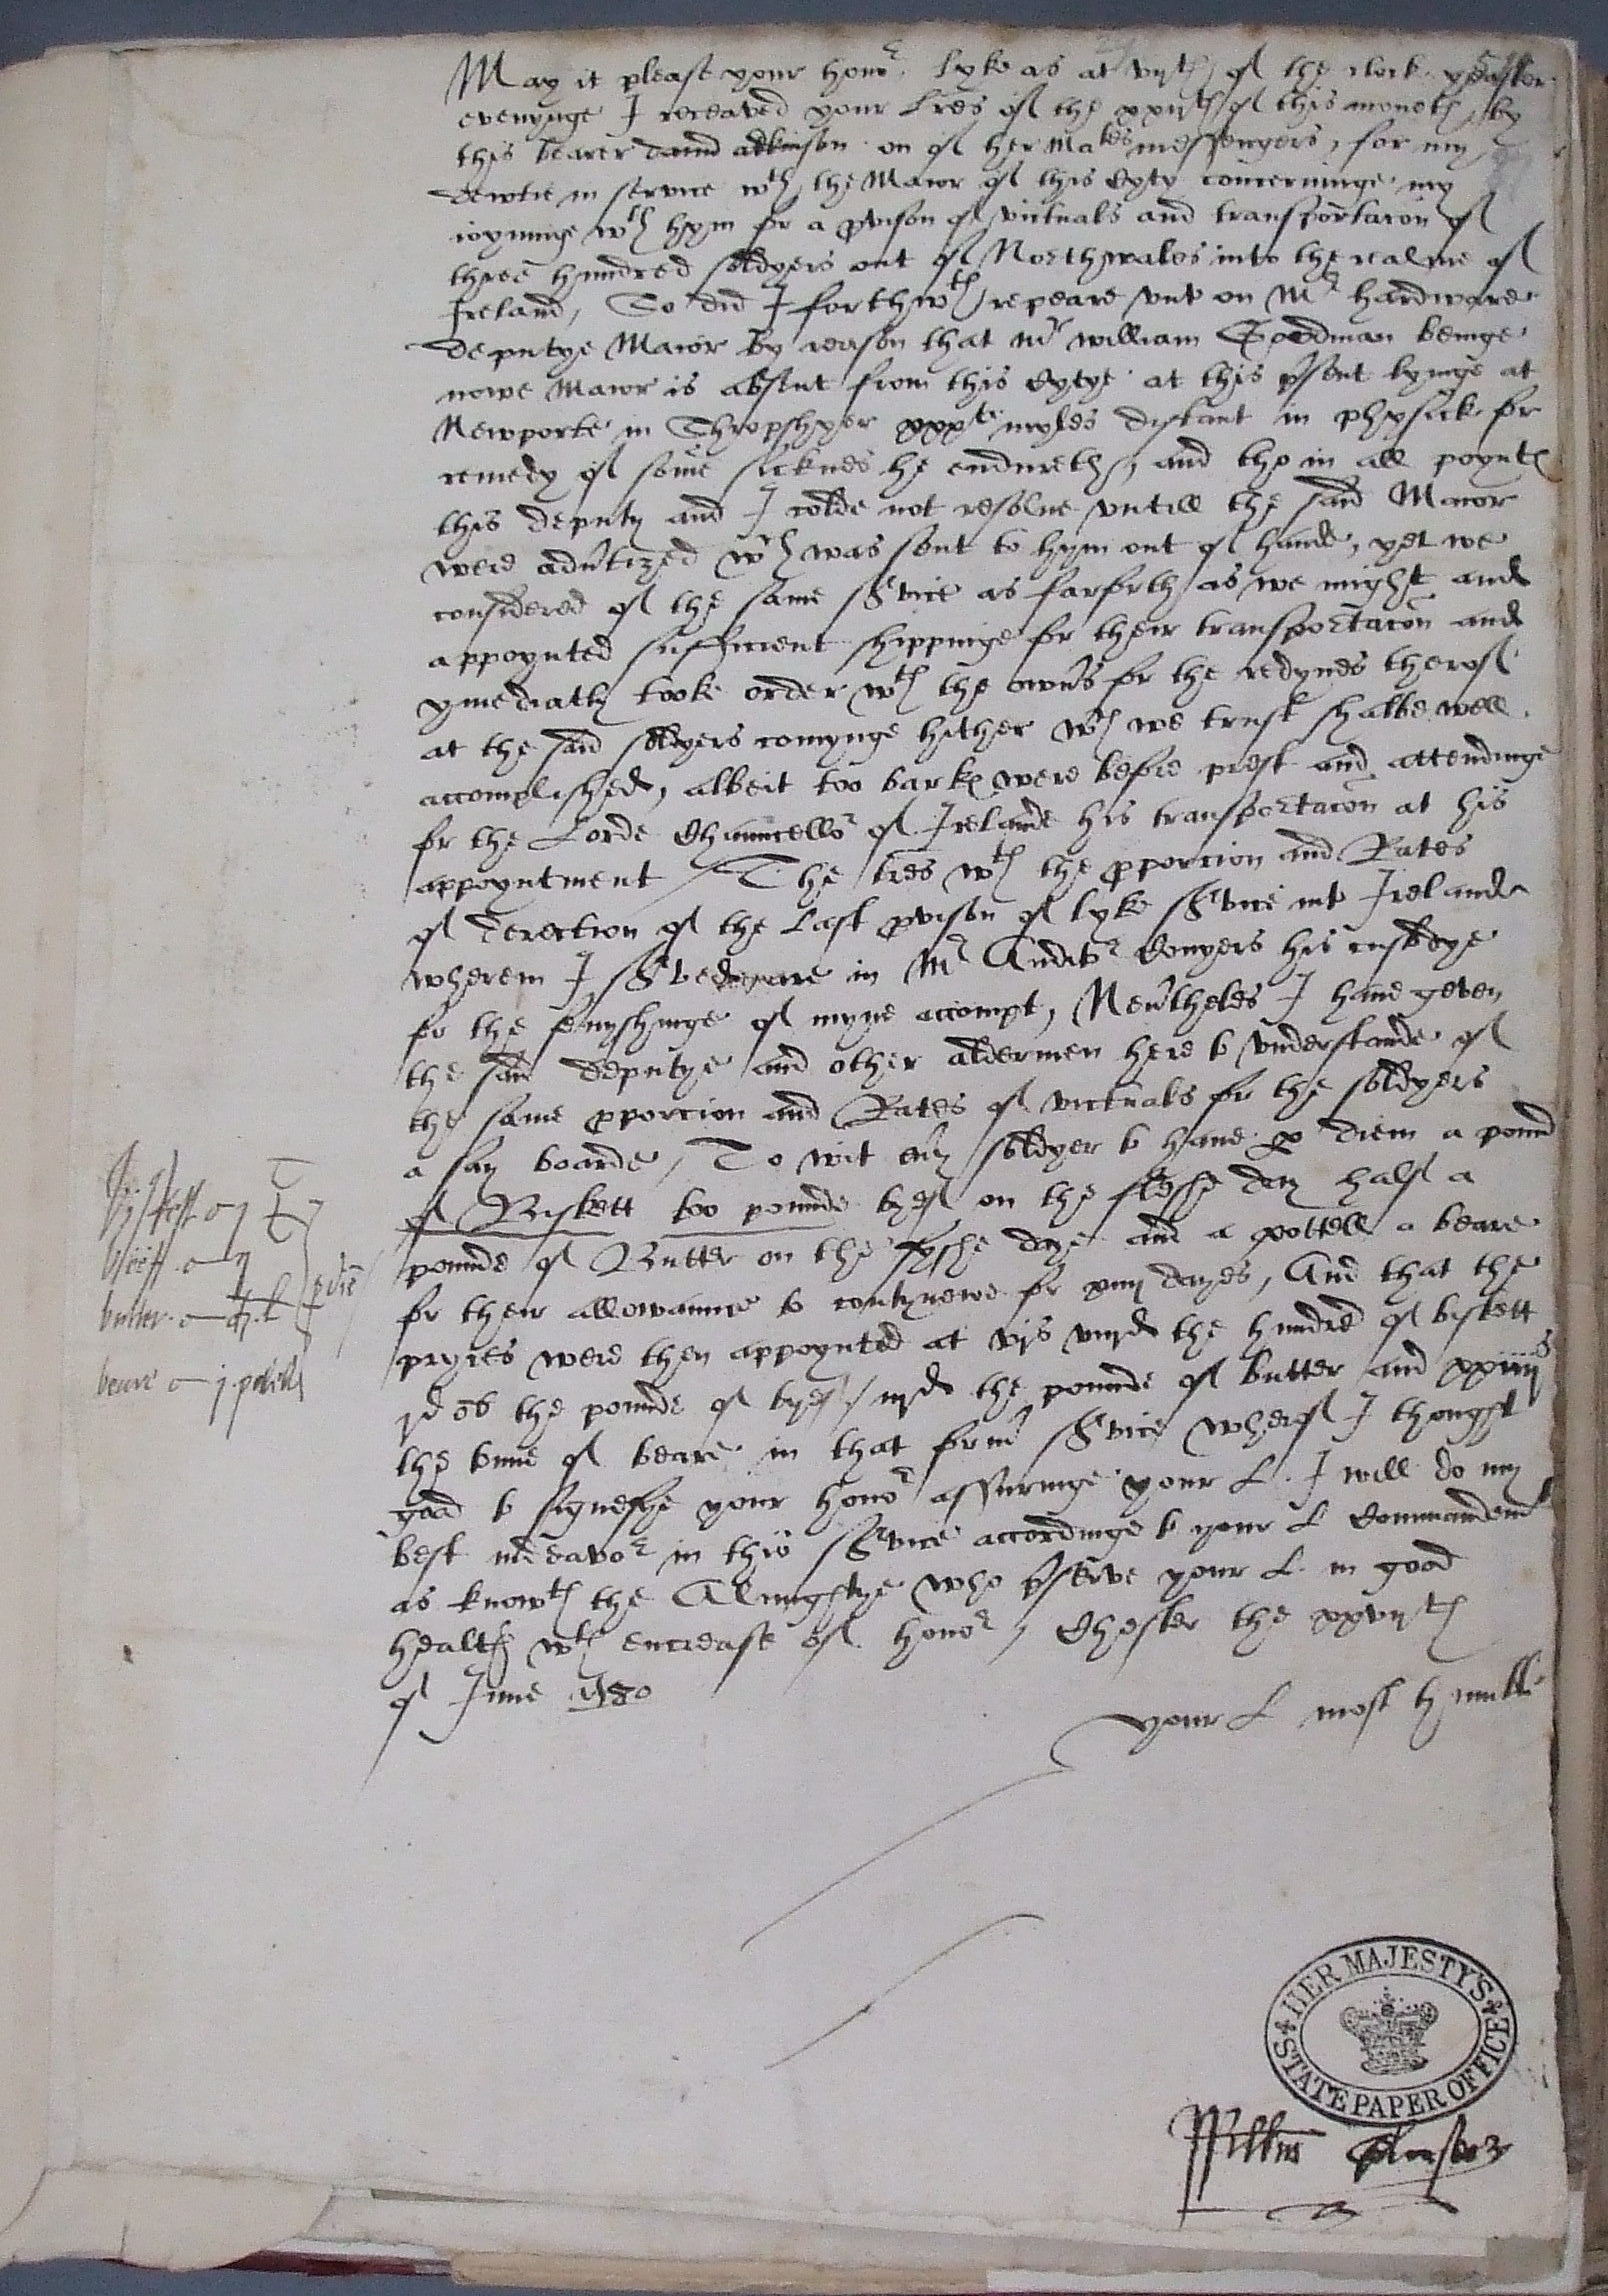 May it please your honor. lyke as at vijth of the clock yeaster
evenynge I receaved your Lres of the xxijth of this moneth by
this bearer david adkinson on of her Maties messengers, for my
dewtie in service wth the Maior of this Cyty concerninge my
ioyninge wth hym for a pvison of victuals and transportacon of
three hundred soldyers out of Northwales into the realme of
Ireland, So did I forthwth repeare vnto on Mr hardware
deputye Maior By reason that mr william Goodman beinge
nowe Maior is absent from this Cytye at this psent lyinge at
Newporte in Shropshyer xxxte myles distant in physick for
remedy of some sicknes he endureth, and tho in all poynts
this deputy and I colde not resolue vntill the said Maior
were advtized wch was sent to hym out of hande, yet we
considered of the same svice as farforth as we might and
appoynted sufficient shippinge for their transportacon and
ymediatly took order wth the owners for the redynes therof
at the said soldyers comynge hither wch we trust shalbe well
accomplished, albeit too barks were before prest and attendinge
for the Lorde Chauncellor of Irelande his transportacon at his
appoyntment / The lres wth the pporcion and Rates
of derection of the last pvison of lyke svice into Ireland
wherein I sved are in Mr Auditor Conyers his custodye
for the fenyshinge of myne accompt, Neutheles I haue geven
the said deputye and other aldermen here to vnderstande of
the same pporcion and Rates of victuals for the soldyers
a say boarde, To wit euy soldyer to haue p diem a pound
of Biskett too pounde byef on the fleshe day half a
pounde of Butter on the fyshe daye and a pottell a beare
for their allowaunce to contynewe for xiiij dayes, And that the
pryces were then appoynted at vjs viijd the hundred of biskett
jd ob the pounde of byef / iijd the pounde of butter and xxiiijs
the tunne of beare in that formr svice wherof I thought
good to signefye your honor assuringe your L. I will do my
best indeavor in this svice accordinge to your L Commandemt
as knowth the Almightye who pserve your L. in good
health wth encrease of honor, Chester the xxvijth
of June 1580
your L most humble
byskett j
beeff ij
butter di. l
p die
beare j pottell
HER MAJESTY'S
STATE PAPER OFFICE